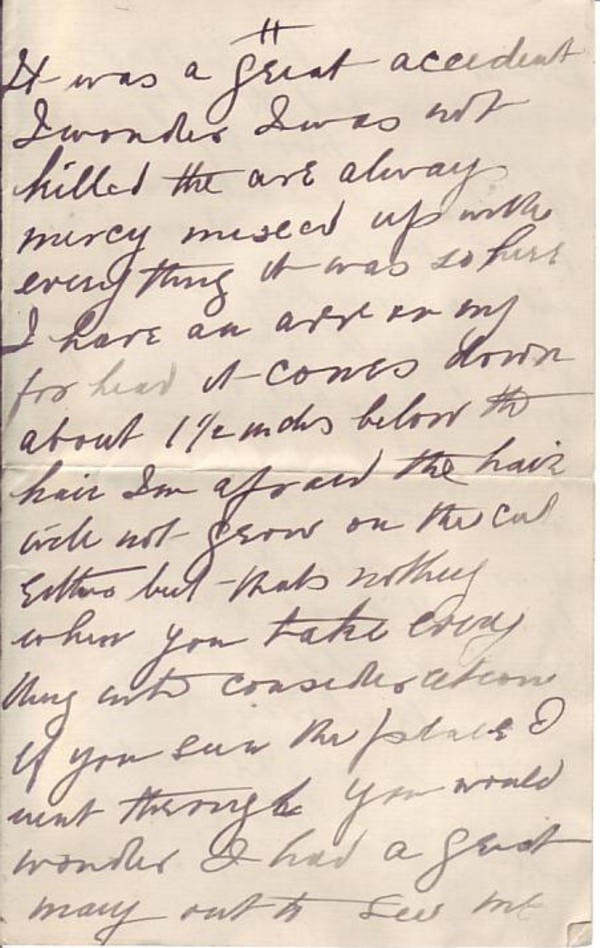 11
It was a great accident
I wonder I was not
killed the are alway
mercy mixed up with
everything it was so here
I have an on my
for head it comes down
about 1 1/2 inches below the
hair Im afraid the hair
will not grow on the cut
Either but thats nothing
when you take every
thing into consideration
If you saw the place I
went through you would
wonder I had a great
many out to see me